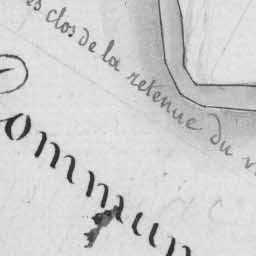 es clos de la retenue du
ommun